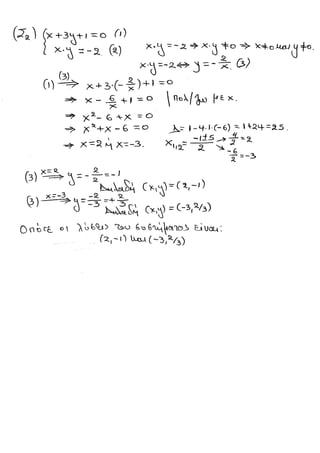 (Σ₂) { x + 3y + 1 = 0 (1)
x·y = -2 (2) x·y = -2 ⇒ x·y ≠ 0 ⇒ x ≠ 0 και y ≠ 0.
x·y = -2 ⇔ y = -2/x. (3)
(1) (3)⇒ x + 3·(-2/x) + 1 = 0
⇒ x - 6/x + 1 = 0 | Πολ/ζω με x.
⇒ x² - 6 + x = 0
⇒ x² + x - 6 = 0 Δ = 1 - 4·1·(-6) = 1 + 24 = 25.
⇒ x = 2 ή x = -3. x₁,₂ = (-1 ± 5)/2 → 4/2 = 2 → -6/2 = -3
(3) x=2⇒ y = -2/2 = -1
Δηλαδή (x,y) = (2,-1)
(3) x=-3⇒ y = -2/-3 = +2/3
Δηλαδή (x,y) = (-3, 2/3)
Οπότε οι λύσεις του συστήματος είναι:
(2,-1) και (-3, 2/3)